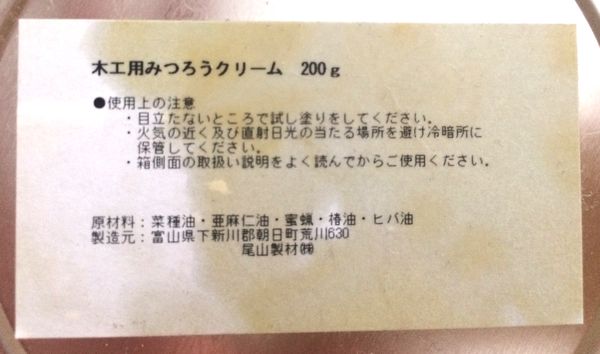 木工用みつろうクリーム 200g
●使用上の注意
・目立たないところで試し塗りをしてください。
・火気の近く及び直射日光の当たる場所を避け冷暗所に
保管してください。
・箱側面の取扱い説明をよく読んでからご使用ください。
原材料：菜種油・亜麻仁油・蜜蝋・椿油・ヒバ油
製造元：富山県下新川郡朝日町荒川630
尾山製材㈱